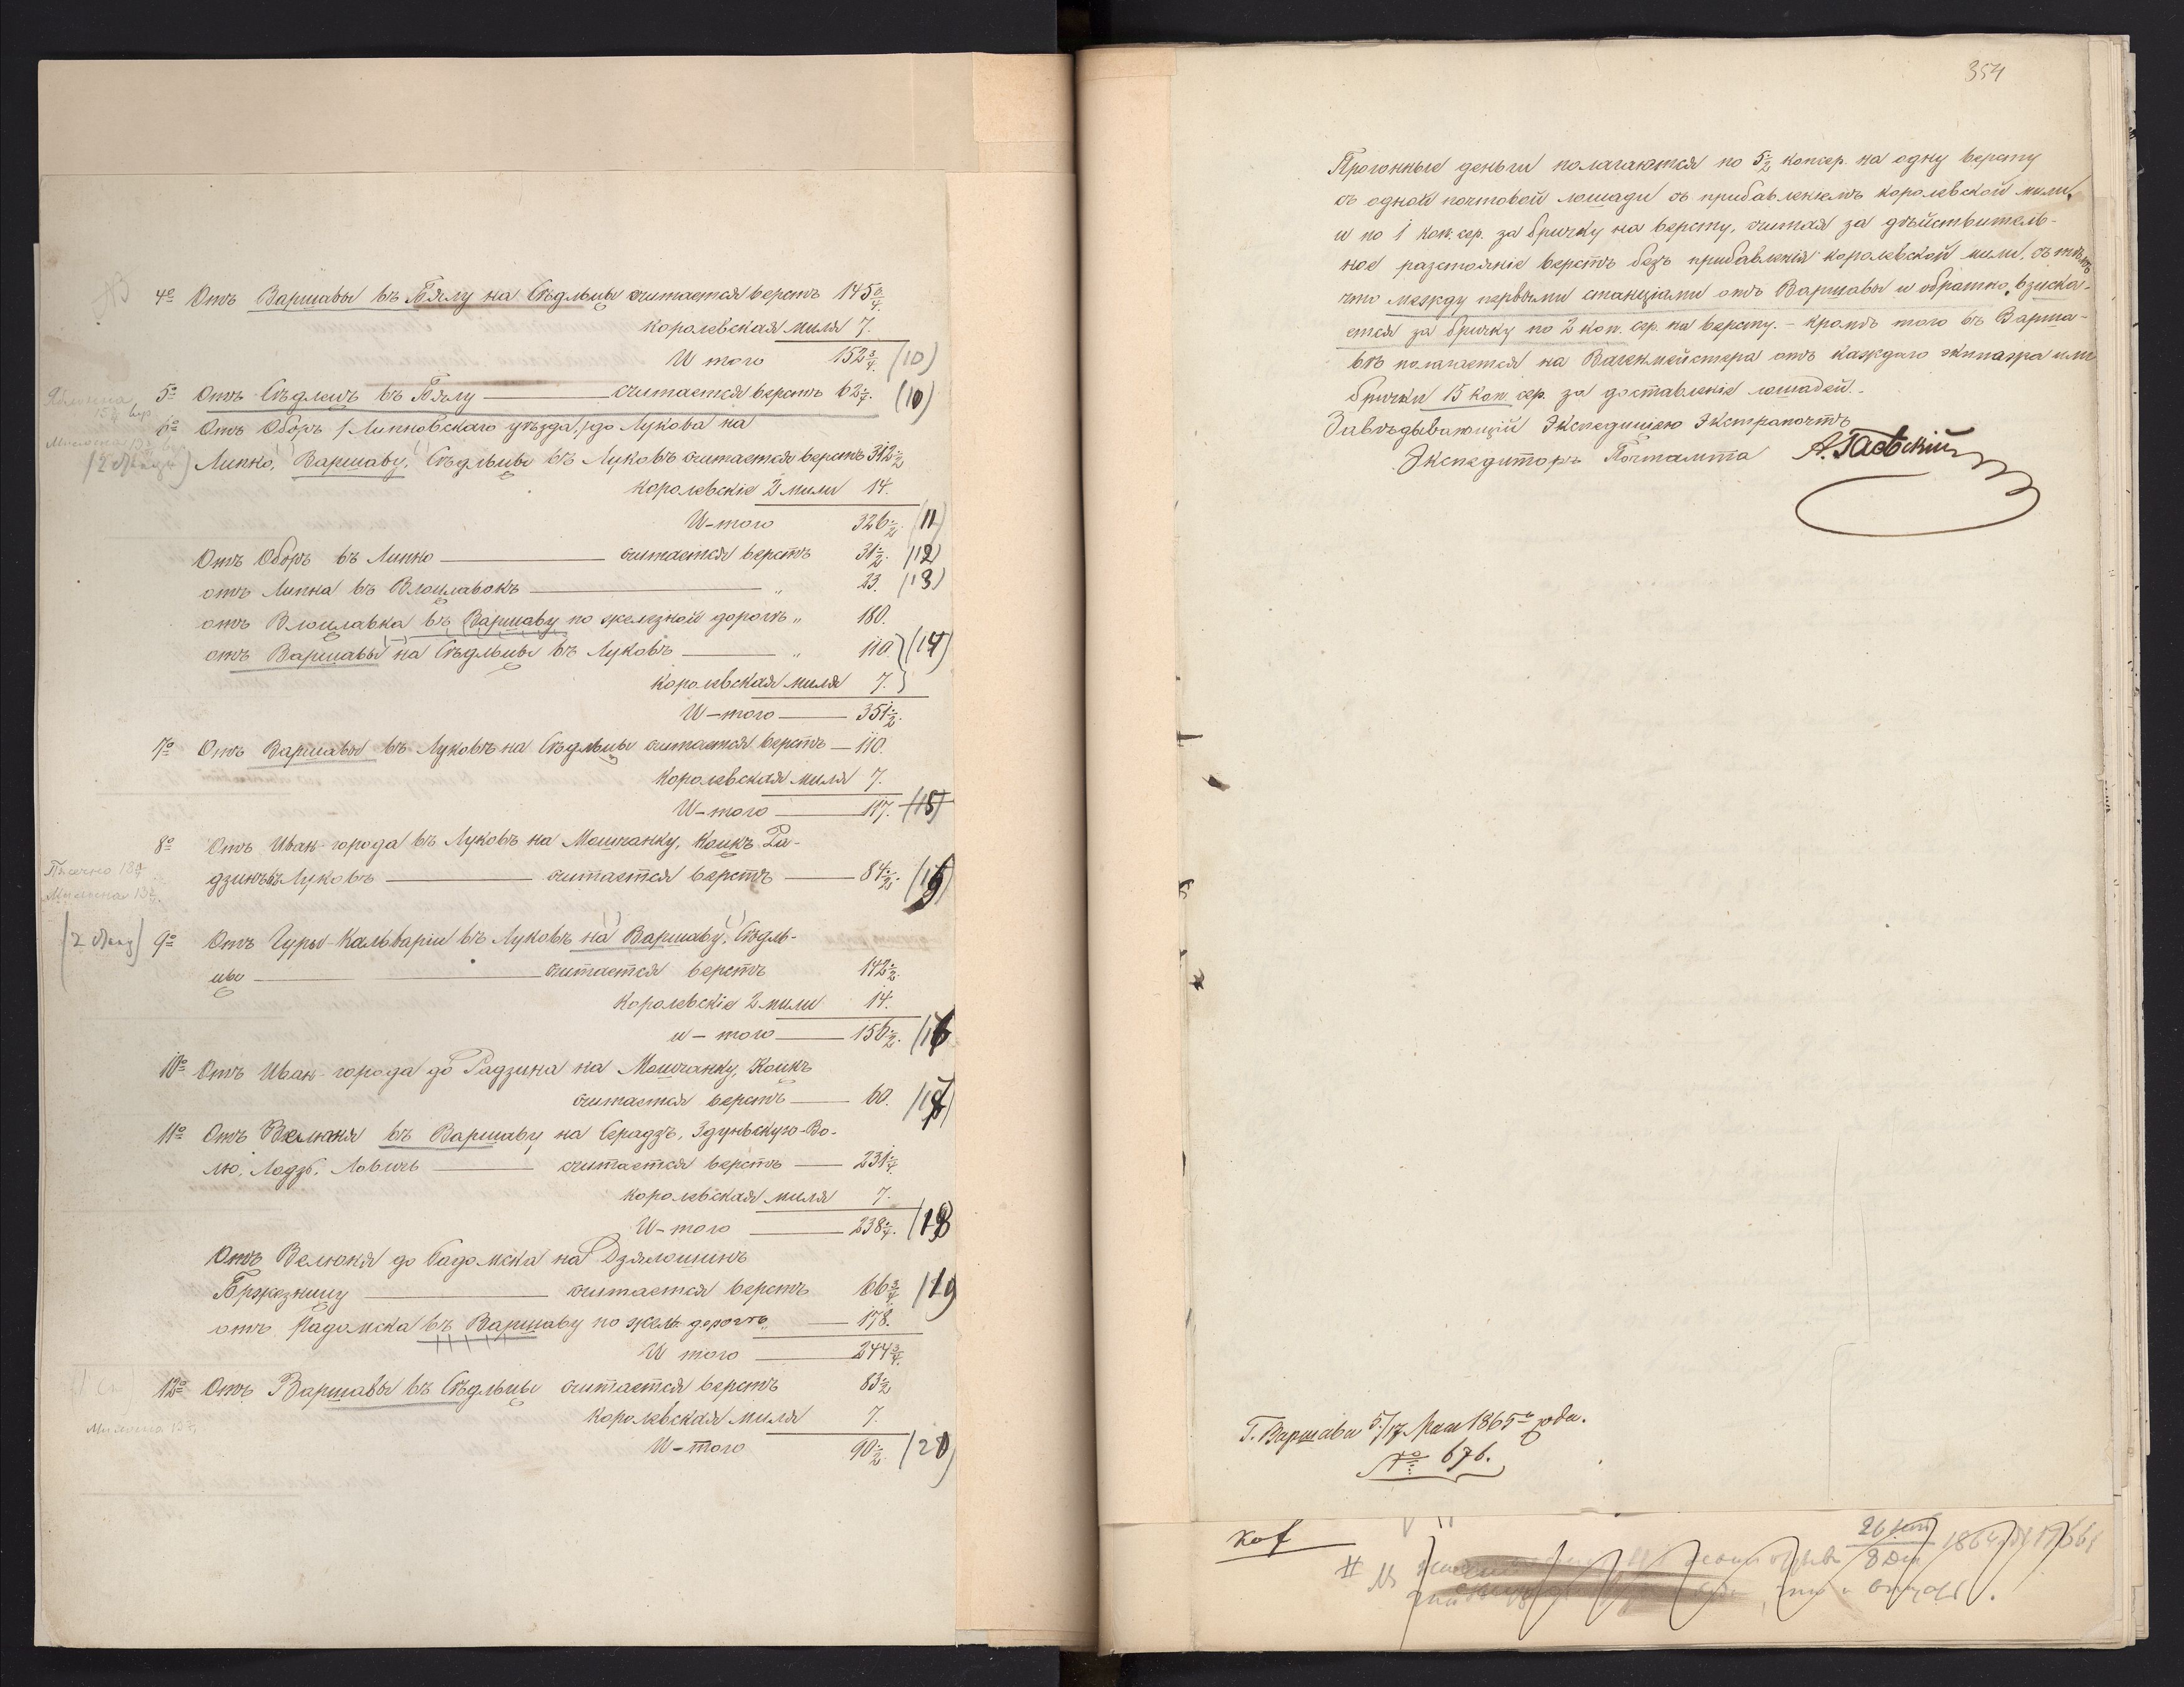 4º Отъ Варшавы въ Бялу на Сѣдльцы считается верстъ 145¾.
Королевская миля 7.
И того 152¾. (10)
5º Отъ Сѣдлецъ въ Бялу считается верстъ 62¼. (10)
6º Отъ Оборъ /Липновскаго уѣзда,/ до Лукова на
Липно, Варшаву, Сѣдльцы въ Луковъ считается верстъ 312½
Королевскіе 2 мили 14.
И-того 326½. (11)
Отъ Оборъ въ Липно считается верстъ 31½. (12)
отъ Липна въ Влоцлавокъ „ 23. (13)
отъ Влоцлавка въ Варшаву по желѣзной дорогѣ „ 180.
отъ Варшавы на Сѣдльцы въ Луковъ „ 110. (14)
Королевская миля 7.
И-того 351½.
7º Отъ Варшавы въ Луковъ на Сѣдльцы считается верстъ 110.
Королевская миля 7.
И-того 117. (15)
8º Отъ Иван-города въ Луковъ на Мощанку, Коцкъ Ра-
дзинъ въ Луковъ считается верстъ 84½.
9º Отъ Гуры-Кальваріи въ Луковъ на Варшаву, Сѣдль-
цы считается верстъ 142½.
Королевскіе 2 мили 14.
и-того 156½. (16
10º Отъ Иван-города до Радзина на Мощанку, Коцкъ
считается верстъ 60. (17)
11º Отъ Велюня въ Варшаву на Серадзъ, Здуньскую-Во-
лю, Лодзь, Ловичъ считается верстъ 231¼.
Королевская миля 7.
И-того 238¼. (18
Отъ Велюня до Радомска на Дзялошинъ
Бржезницу считается верстъ 66¾ (19
отъ Радомска въ Варшаву по жел. дорогѣ „ 178.
И того 244¾.
12º Отъ Варшавы въ Сѣдльцы считается верстъ 83½
Королевская миля 7.
И-того 90½. (20)
354
Прогонные деньги полагаются по 5½ коп. сер. на одну версту
съ одной почтовой лошади съ прибавленіемъ королевской мили,
и по 1 коп. сер. за бричку на версту, считая за дѣйствитель-
ное разстояніе верстъ безъ прибавленія королевской мили, съ тѣмъ
что между первыми станціями отъ Варшавы и обратно, взиска-
ется за бричку по 2 коп. сер. на версту. – Кромѣ того въ Варша-
вѣ полагается на Вагенмейстера отъ каждаго экипажа или
брички 15 коп. сер. за доставленіе лошадей.
Завѣдывающій Экспедиціею Экстрапочтъ
Экспедиторъ Почтамта
Г. Варшава 5/17 Мая 1865º года.
№ 676.